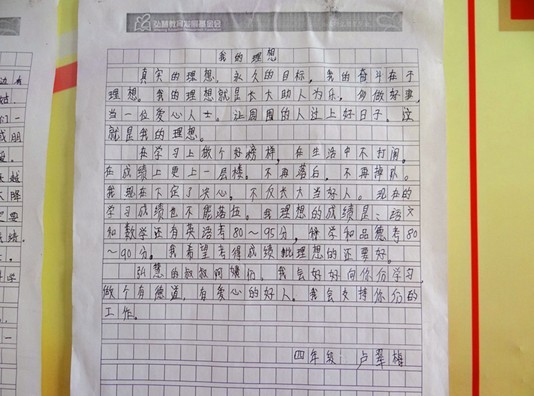 弘慧教育发展基金会
我的理想
真实的理想，永久的目标，我的奋斗在于
理想。我的理想就是长大助人为乐，多做好事，
当一位爱心人士。让周围的人过上好日子，这
就是我的理想。
在学习上做个好榜样，在生活中不打闹。
在成绩上更上一层楼，不再落白，不再掉队。
我现在下定了决心，不久长大当好人。现在的
学习成绩也不能落位。我理想的成绩是：语文
和数学还有英语考80～95分，科学和品德考80
～90分。我希望考得成绩比理想的还要好。
弘慧的叔叔阿姨们，我会好好向你们学习，
做个有德道，有爱心的好人。我会支持你们的
工作。
四年级：卢翠梅